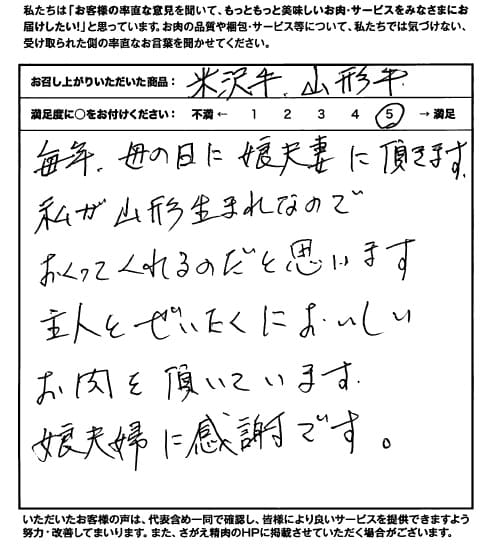 私たちは「お客様の率直な意見を聞いて、もっともっと美味しいお肉・サービスをみなさまにお
届けしたい!」と思っています。お肉の品質や梱包・サービス等について、私たちでは気づけない、
受け取られた側の率直なお言葉を聞かせてください。
お召し上がりいただいた商品： 米沢牛、山形牛
満足度に○をお付けください： 不満 ← 1 2 3 4 5 → 満足
毎年、母の日に娘夫妻に頂きます。
私が山形生まれなので
おくってくれるのだと思います
主人とぜいたくにおいしい
お肉を頂いています。
娘夫婦に感謝です。
いただいたお客様の声は、代表含め一同で確認し、皆様により良いサービスを提供できますよう
努力・改善してまいります。また、さがえ精肉のHPに掲載させていただく場合がございます。